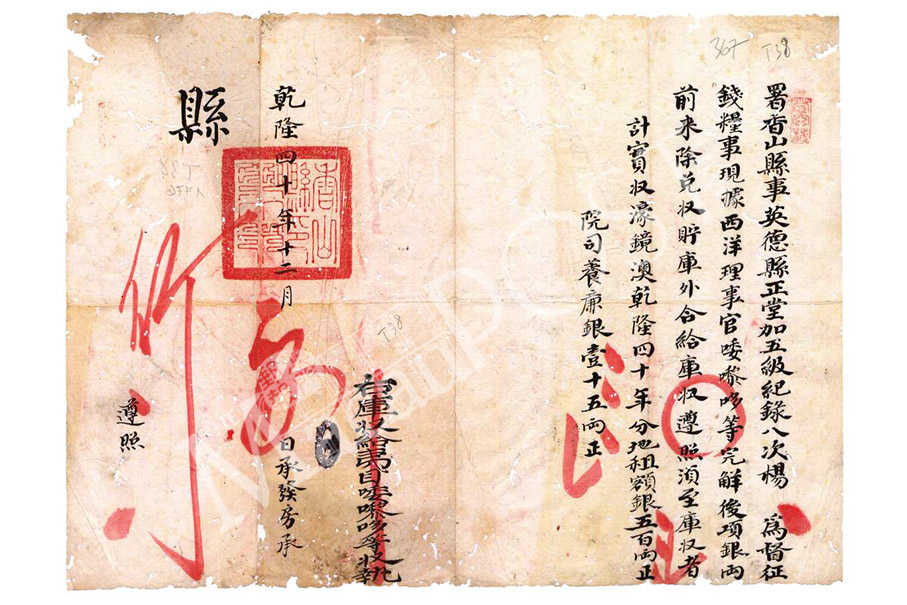 署香山縣事英德縣正堂加五級紀錄八次楊　為督征
錢糧事現據西洋理事官唩嚟哆等完解後項銀両
前来除兑収貯庫外合給庫収遵照湏至庫収者
計實収濠鏡澳乾隆四十年分地租額銀五百両正
院司養廉銀壹十五両正
右庫収給夷目唩嚟哆等収執
乾隆四十年十二月
日承發房承
縣
遵照
香山縣印
367
T38
T38